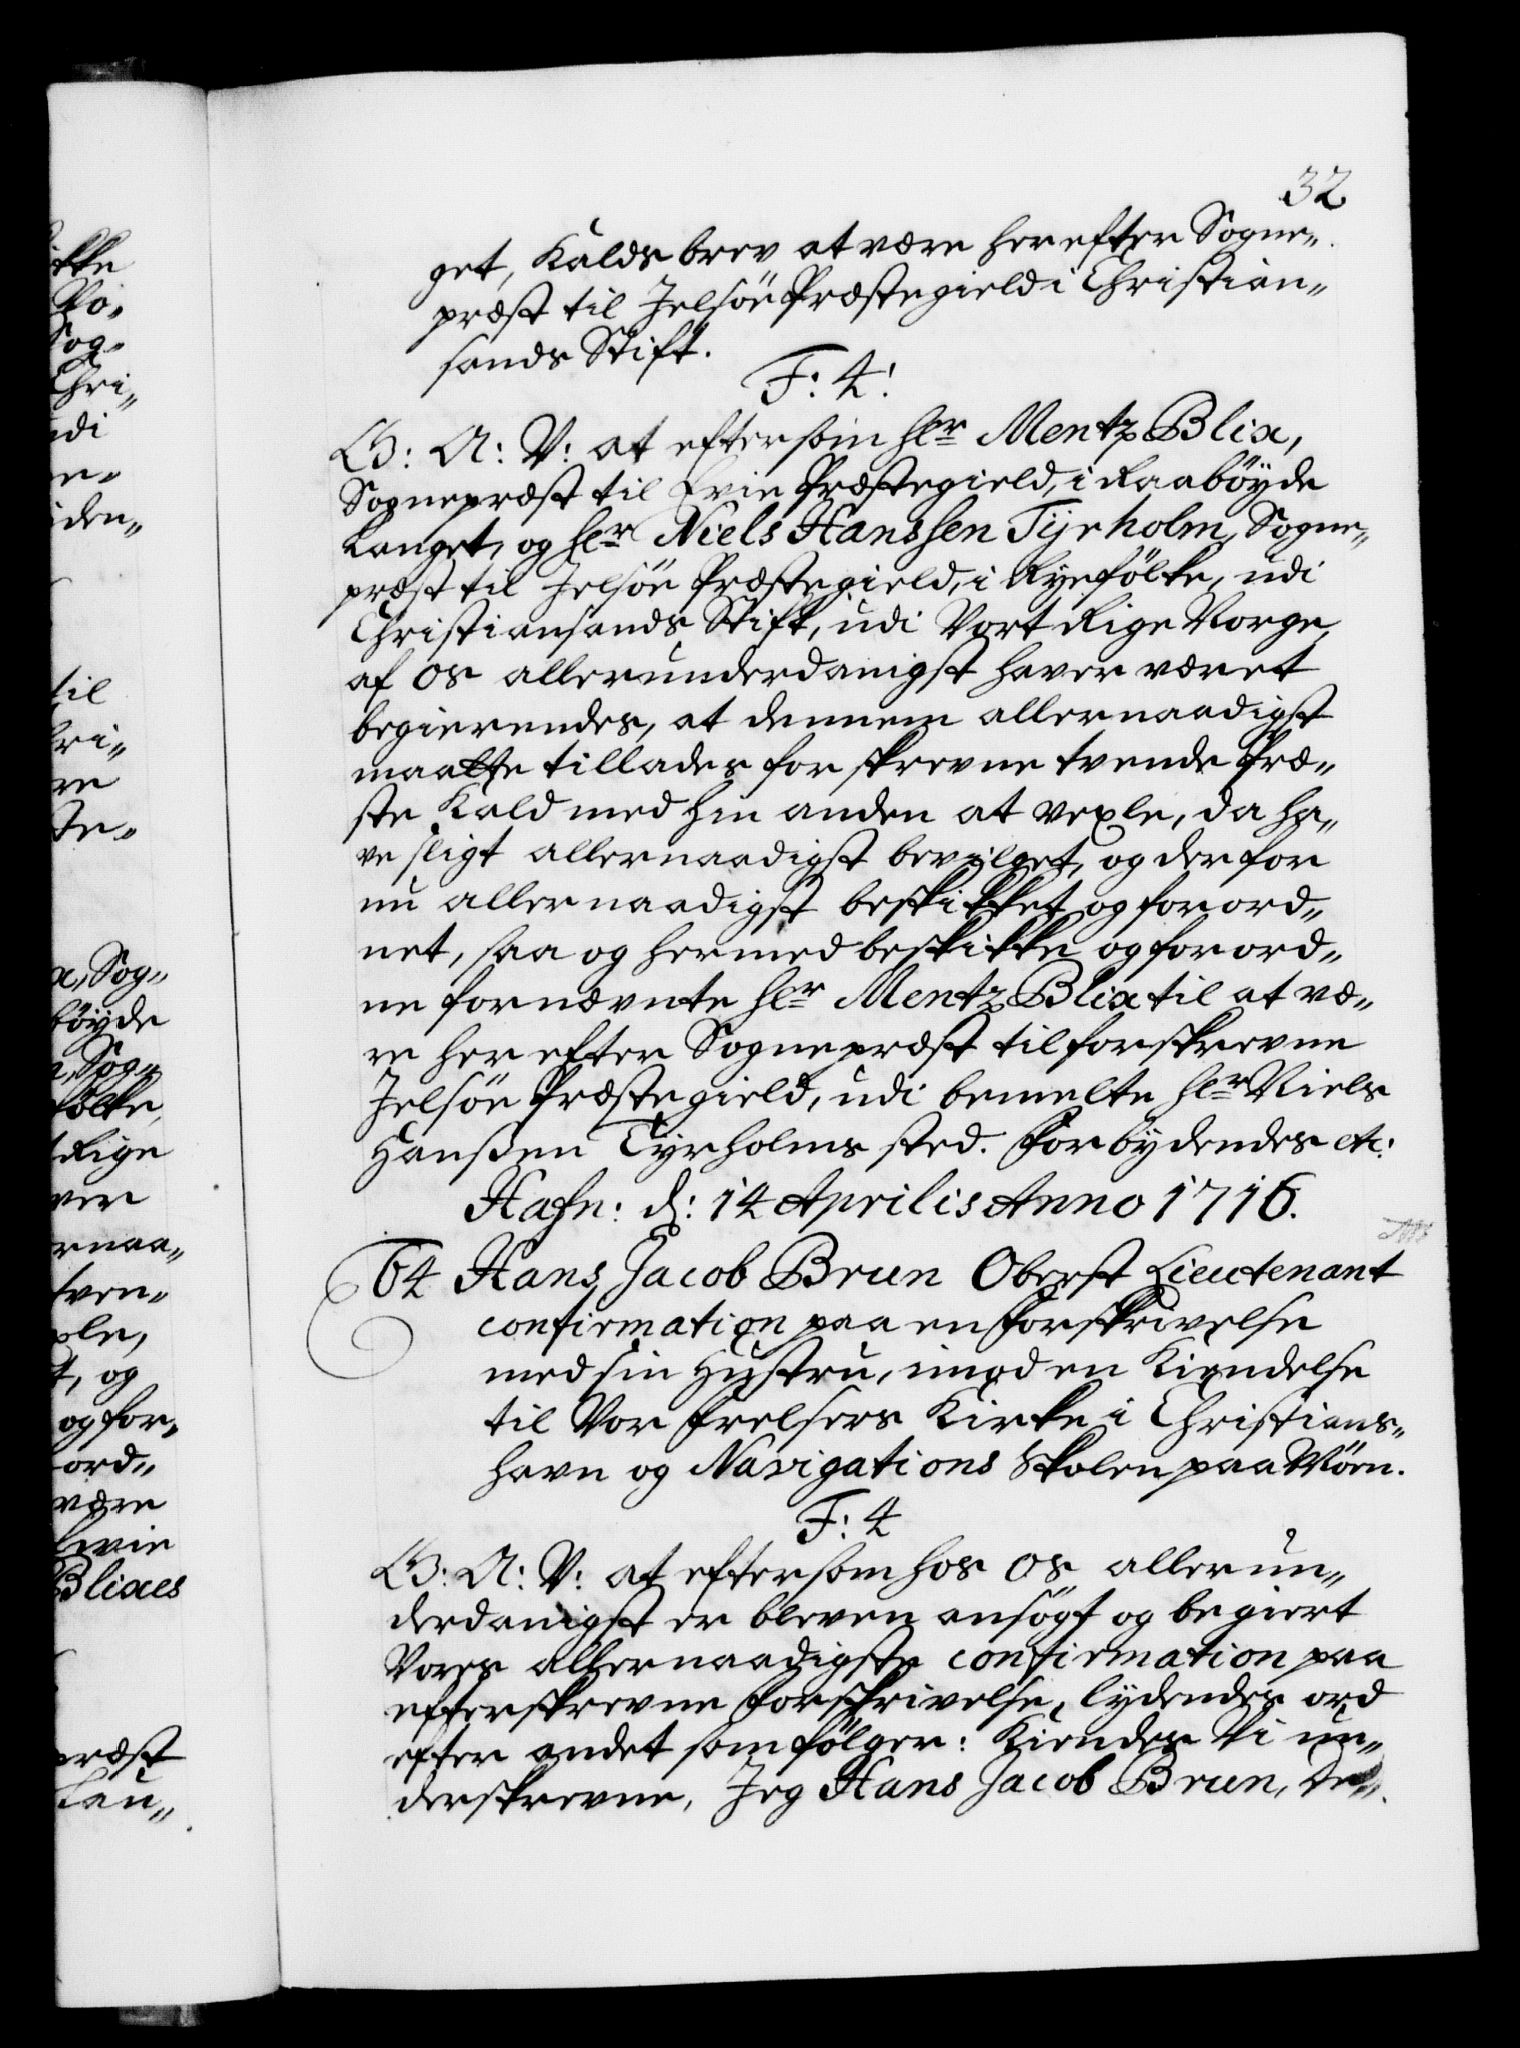 32
get, Kalds brev at være herefter Sogne„
præst til Jelsöe Præstegield i Christian„
sands Stift.
F: 4:
G: A: V: at eftersom hlr Mentz Blix,
Sognepræst til Evie Præstegield, i Raabøyde
Lauget, og hlr Niels Hanssen Tyrholm, Sogne„
præst til Jelsöe Præstegield, i Ryefölke, udi
Christiansands Stift, udi Vort Rige Norge,
af os allerunderdanigst haver været
begierendes, at dennem allernaadigst
maatte tillades forskrevne tvende Præ„
ste Kald med hin anden at vexle, da ha„
ve sligt allernaadigst bevilget, og derfor
nu allernaadigst beskikket og forord„
net, saa og hermed beskikke og forord„
ne fornævnte hlr Mentz Blix til at væ„
re her efter Sognepræst til forskrevne
Jelsöe Præstegield, udi bemelte hlr Niels
Hanssen Tyrholms sted. Forbydendes etc:
Hafn: d: 14 Aprilis Anno 1716.
64 Hans Jacob Brun Oberst Lieutenant
confirmation paa en Forskrivelse
med sin Hustru, imod en Kiendelse
til Vor Frelsers Kirke i Christians„
havn og Navigations Skolen paa Möen.
F: 4
G: A: V: at eftersom hos os allerun„
derdanigst er bleven ansögt og begiert
Vores allernaadigste confirmation paa
efterskrevne Forskrivelse, lydendes ord
efter andet som fölger: Kiendes Vi un„
derskrevne, Jeg Hans Jacob Brun, De„
ikke
Sog„
Chri„
udi
ne„
iden„
til
hri„
re
ste„
x, Sog„
böyde
n, Sog„
fölke,
t Rige
ver
rnaa„
tven„
xle,
t, og
og for„
ord„
være
Evie
Blixes
præst
Lau„